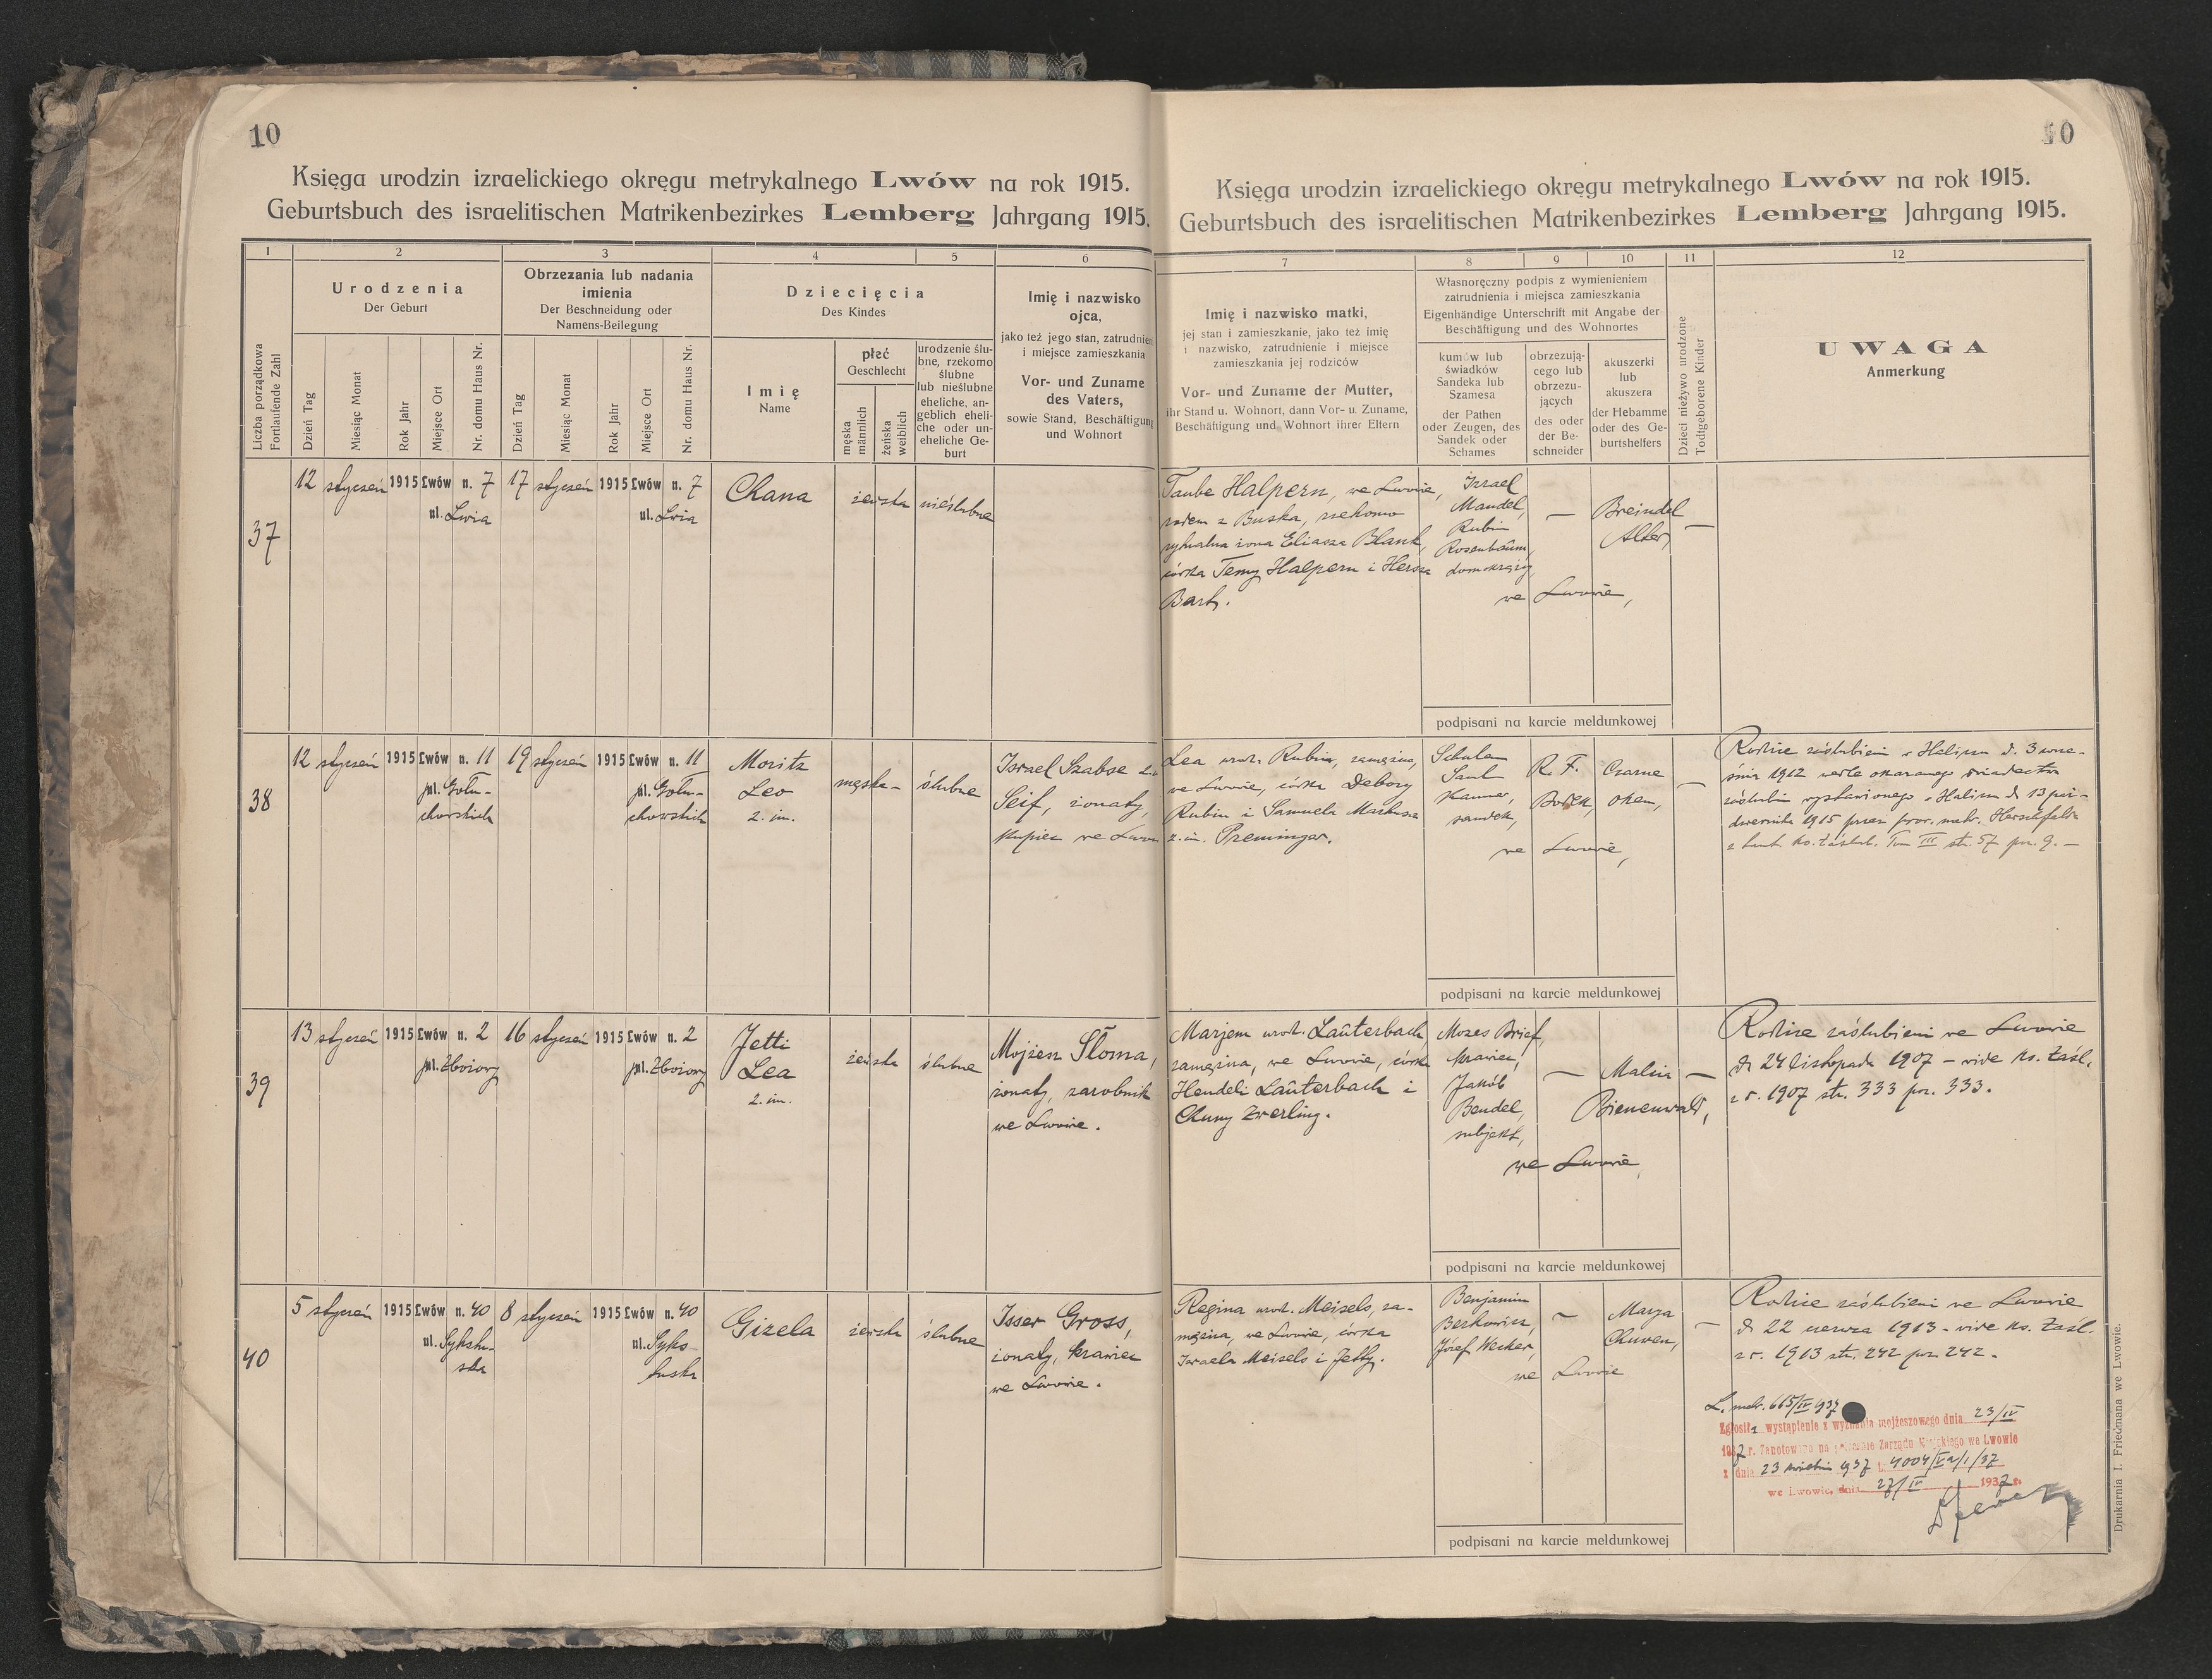 10
Księga urodzin izraelickiego okręgu metrykalnego Lwów na rok 1915.
Geburtsbuch des israelitischen Matrikenbezirkes Lemberg Jahrgang 1915.
1 2 3 4 5 6
Liczba porządkowa
Fortlaufende Zahl
Urodzenia
Der Geburt
Dzień Tag
Miesiąc Monat
Rok Jahr
Miejsce Ort
Nr. domu Haus Nr.
Obrzezania lub nadania
imienia
Der Beschneidung oder
Namens-Beilegung
Dzień Tag
Miesiąc Monat
Rok Jahr
Miejsce Ort
Nr. domu Haus Nr.
Dziecięcia
Des Kindes
Imię
Name
płeć
Geschlecht
męska
männlich
żeńska
weiblich
urodzenie ślu-
bne, rzekomo
ślubne
lub nieślubne
eheliche, an-
geblich eheli-
che oder un-
eheliche Ge-
burt
Imię i nazwisko
ojca,
jako też jego stan, zatrudnien
i miejsce zamieszkania
Vor- und Zuname
des Vaters,
sowie Stand, Beschäftigung
und Wohnort
37
12 styczeń 1915 Lwów n. 7 17 styczeń 1915 Lwów n. 7
ul. Lwia ul. Lwia
Chana
żeńska nieślubne
38
12 styczeń 1915 Lwów n. 11 19 styczeń 1915 Lwów n. 11
pl. Gołu- pl. Gołu-
chowskich chowskich
Moritz
Leo
2. im.
męska ślubne
Israel Szabse
Seif, żonaty,
kupiec we Lwow
39
13 styczeń 1915 Lwów n. 2 16 styczeń 1915 Lwów n. 2
pl. Zbożowy pl. Zbożowy
Jetti
Lea
2. im.
żeńska ślubne
Mojżesz Słoma,
żonaty, zarobnik
we Lwowie.
40
5 styczeń 1915 Lwów n. 40 8 styczeń 1915 Lwów n. 40
ul. Sykstu- ul. Syks-
ska tuska
Gizela
żeńska ślubne
Isser Gross,
żonaty, krawiec
we Lwowie.
10
Księga urodzin izraelickiego okręgu metrykalnego Lwów na rok 1915.
Geburtsbuch des israelitischen Matrikenbezirkes Lemberg Jahrgang 1915.
7 8 9 10 11 12
Imię i nazwisko matki,
jej stan i zamieszkanie, jako też imię
i nazwisko, zatrudnienie i miejsce
zamieszkania jej rodziców
Vor- und Zuname der Mutter,
ihr Stand u. Wohnort, dann Vor- u. Zuname,
Beschäftigung und Wohnort ihrer Eltern
Własnoręczny podpis z wymienieniem
zatrudnienia i miejsca zamieszkania
Eigenhändige Unterschrift mit Angabe der
Beschäftigung und des Wohnortes
kumów lub
świadków
Sandeka lub
Szamesa
der Pathen
oder Zeugen, des
Sandek oder
Schames
obrzezują-
cego lub
obrzezu-
jących
des oder
der Be-
schneider
akuszerki
lub
akuszera
der Hebamme
oder des Ge-
burtshelfers
Dzieci nieżywo urodzone
Todtgeborene Kinder
UWAGA
Anmerkung
Taube Halpern, we Lwowie,
rodem z Buska, rzekomo
rytualna żona Eliasza Blank,
córka Temy Halpern i Hersza
Bart.
Izrael
Mandel,
Rubin
Rosenbaum,
domokrążcy
— Breindel
Alter, —
we Lwowie,
podpisani na karcie meldunkowej
Lea urodz. Rubin, zamężna,
we Lwowie, córka Debory
Rubin i Samuela Markusa
2. im. Preminger.
Schulem
Saul
Kanner,
sandek,
R. F.
Bodek,
Czarne
Oken, —
we Lwowie,
podpisani na karcie meldunkowej
Rodzice zaślubieni w Haliczu d. 3 wrze-
śnia 1912 wedle okazanego świadectwa
zaślubin wystawionego w Haliczu d. 13 paź-
dziernika 1915 przez prow. metr. Herschfelda
z tamt. ks. zaślub. Tom III str. 57 poz. 9. —
Marjem urodz. Lauterbach,
zamężna, we Lwowie, córka
Hendeli Lauterbach i
Chuny Zwerling.
Mozes Brief,
krawiec,
Jakób
Bendel,
subjekt,
— Malcia —
Bienenwald,
we Lwowie,
podpisani na karcie meldunkowej
Rodzice zaślubieni we Lwowie
d. 24 listopada 1907 — vide ks. zaśl.
z r. 1907 str. 333 poz. 333.
Regina urodz. Meisels, za-
mężna, we Lwowie, córka
Israela Meisels i Jetty.
Benjamin
Berkowicz,
Józef Wecker,
— Marya
Chuwen, —
we Lwowie
podpisani na karcie meldunkowej
Rodzice zaślubieni we Lwowie
d. 22 czerwca 1913 — vide ks. zaśl.
z r. 1913 str. 242 poz. 242.
L. metr. 665/IV 937
Zgłosiła wystąpienie z wyznania mojżeszowego dnia 23/IV
1937 r. Zanotowano na podstawie Zarządu Miejskiego we Lwowie
z dnia 23 kwietnia 937 L. 4004/
we Lwowie, dnia 27/IV 1937 r.
Drukarnia I. Friedmana we Lwowie.